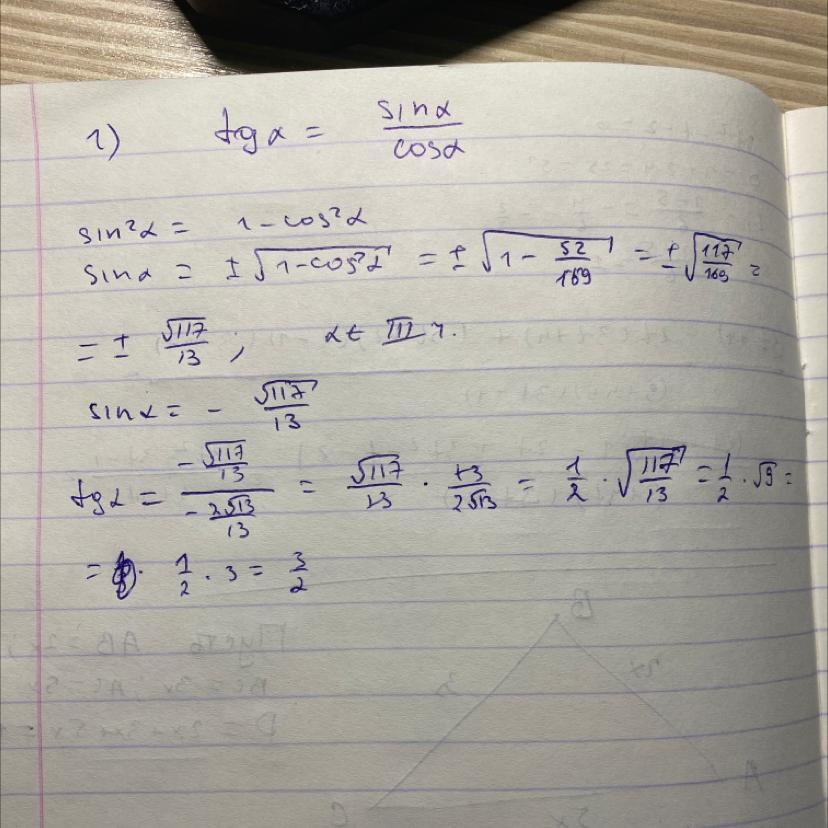 1) tg α = sinα/cosα
sin²α = 1 - cos²α
sinα = ± √(1-cos²α) = ± √(1 - 52/169) = ± √(117/169) =
= ± √117/13 ; α ∈ III ч.
sinα = - √117/13
tgα = (-√117/13)/(-2√13/13) = √117/13 · 13/2√13 = 1/2 · √(117/13) = 1/2 · √9 =
= · 1/2 · 3 = 3/2